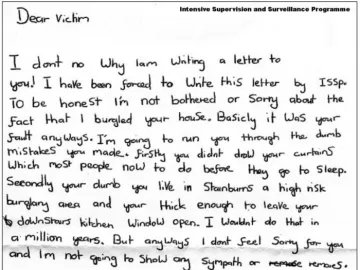 Intensive Supervision and Surveillance Programme
Dear Victim
I dont no Why Iam Writing a letter to
you! I have been forced to Write this letter by ISSP.
To be honest I'm not bothered or Sorry about the
fact that I burgled your house. Basicly it was your
fault anyways. I'm going to run you through the dumb
mistakes you made. Firstly you didnt draw your curtains
Which most people now to do before they go to sleep.
Secondly your dumb you live in Stainburn a high risk
burglary area and your thick enough to leave your
downstairs kitchen window open. I Wouldnt do that in
a million years. But anyways I dont feel sorry for you
and Im not going to show any sympath or remores.